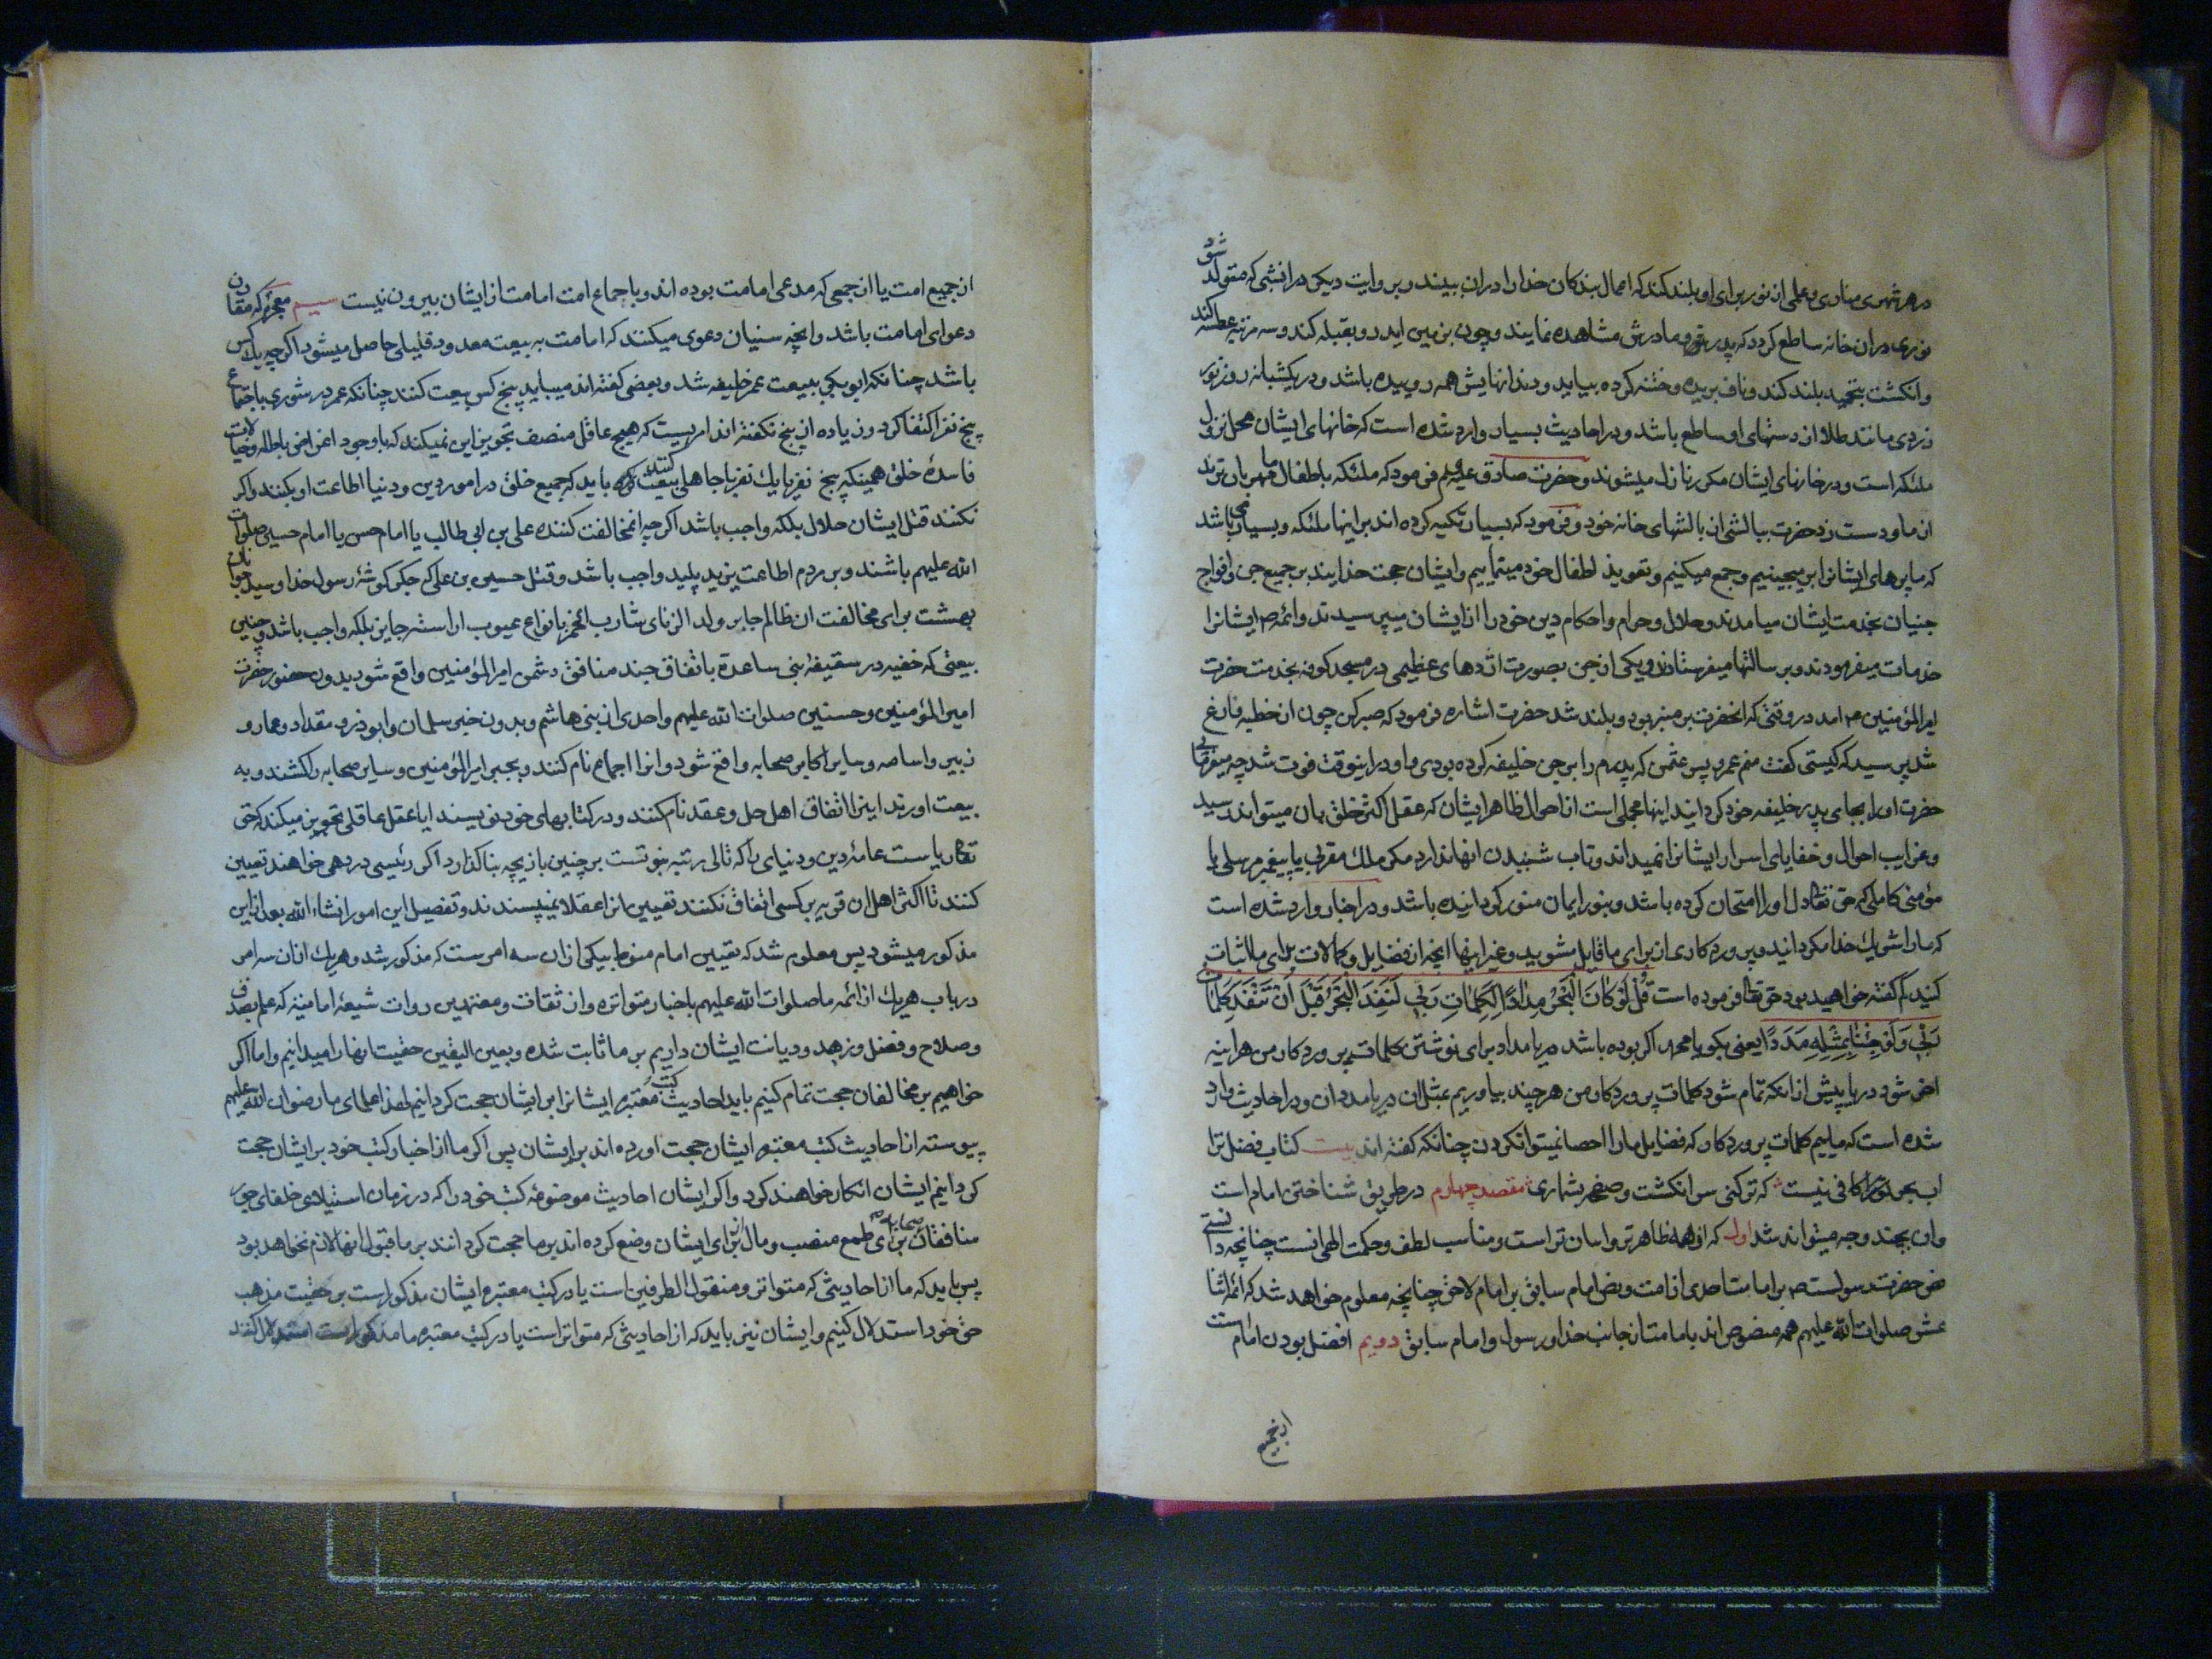 در هر شهری مناری و علمی از نور برای او بلند کند که اعمال بندکان خدا را در ان ببیند و بروایت دیکر در انشبی که متولد شود
نوری در ان خانه ساطع کردد که پدر و مادرش مشاهده نمایند و چون بزمین اید رو بقبله کند و سه مرتبه عطسه کند
و انکشت بتحمید بلند کند و ناف بریده و ختنه کرده بیاید و دندانهایش همه روییده باشد و در یکشبانه روز نور
زردی مانند طلا از دستهای او ساطع باشد و در احادیث بسیار وارد شده است که خانهای ایشان محل نزول
ملئکه است و در خانهای ایشان مکرر نازل میشوند و حضرت صادق علیه فرمود که ملئکه باطفال ما مهربان ترند
از ما و دست زد حضرت ببالشی از بالشهای خانه خود و فرمود که بسیار تکیه کرده اند بر اینها ملئکه و بسیار می باشد
که ما پرهای ایشانرا بر میچینیم و جمع میکنیم و تعویذ اطفال خود مینماییم و ایشان حجت خدایند بر جمیع جن و افواج
جنیان بخدمت ایشان میامدند و حلال و حرام و احکام دین خود را از ایشان میپرسیدند و ائمه ایشانرا
خدمات میفرمودند و برسالتها میفرستادند و یکی از جن بصورت اژدهای عظیمی در مسجد کوفه بخدمت حضرت
امیر المؤمنین امد در وقتی که انحضرت بر منبر بود و بلند شد حضرت اشاره فرمود که صبر کن چون از خطبه فارغ
شد پرسید که کیستی کفت منم عمرو پسر عثمن که پدرم را بر جن خلیفه کرده بودی و او در اینوقت فوت شد چه میفرمایی
حضرت او را بجای پدر خلیفه خود کردانید اینها مجملی است از احوال ظاهر ایشان که عقل اکثر خلق بان میتواند رسید
و غرایب احوال و خفایای اسرار ایشانرا نمیداند و تاب شنیدن انها ندارد مکر ملک مقربی یا پیغمبر مرسلی یا
مؤمنی کاملی که حق تعالی دل او را امتحان کرده باشد و بنور ایمان منور کردانیده باشد و در اخبار وارد شده است
که ما را شریک خدا مکردانید و پروردکاری از برای ما قایل مشوید و غیر اینها انچه از فضایل و کمالات برای ما اثبات
کنید کم کفته خواهید بود حق تعالی فرموده است قُلْ لَوْ کٰانَ الْبَحْرُ مِدٰادًا لِکَلِمٰاتِ رَبّی لَنَفِدَ الْبَحْرُ قَبْلَ اَنْ تَنْفَدَ کَلِمٰاتُ
رَبّی وَلَوْ جِئْنٰا بِمِثْلِهِ مَدَدًا یعنی بکو یا محمد اکر بوده باشد دریا مداد برای نوشتن کلمات پروردکار من هراینه
اخر شود دریا پیش از انکه تمام شود کلمات پروردکار من هرچند بیاوریم بمثل ان دریا مدد ان و در احادیث وارد
شده است که ماییم کلمات پروردکار که فضایل ما را احصا نمیتوان کردن چنانکه کفته اند بیت کتاب فضل ترا
اب بحر کافی نیست که ترکنی سر انکشت و صفحه بشماری مقصد چهارم در طریق شناختن امام است
و ان بچند وجه میتواند شد اول که از همه ظاهرتر و اسان تر است و مناسب لطف و حکمت الهی انست چنانچه دانستی
نص حضرت رسولست بر امامت احدی از امت و نص امام سابق بر امام لاحق چنانچه معلوم خواهد شد که ائمه اثنا
عشر صلوات الله علیهم همه منصوص اند بامامت از جانب خدا و رسول و امام سابق دویم افضل بودن امام است
از جمیع
از جمیع امت یا از جمعی که مدعی امامت بوده اند و باجماع امت امامت از ایشان بیرون نیست سیم معجزه که مقارن
دعوای امامت باشد و انچه سنیان دعوی میکنند که امامت به بیعت معدود قلیلی حاصل میشود اکرچه یک کس
باشد چنانکه ابوبکر به بیعت عمر خلیفه شد و بعضی کفته اند میباید پنج کس بیعت کنند چنانکه عمر در شوری باجتماع
پنج نفر اکتفا کرد و زیاده از پنج نکفته اند امریست که هیچ عاقل منصف تجویز این نمیکند که باوجود اغراض باطله و خیالات
فاسدهٔ خلق همینکه پنج نفر یا یک نفر با جاهلی بیعت کنند باید که جمیع خلق در امور دین و دنیا اطاعت او بکنند و اکر
نکنند قتل ایشان حلال بلکه واجب باشد اکر چه ان مخالفت کننده علی بن ابی طالب یا امام حسن یا امام حسین صلوات
الله علیهم باشند و بر مردم اطاعت یزید پلید واجب باشد و قتل حسین بن علی که جکر کوشهٔ رسول خدا و سید جوانان
بهشت برای مخالفت ان ظالم جابر ولد الزنای شارب الخمر بانواع عیوب اراسته جایز بلکه واجب باشد و چنین
بیعتی که خفیه در سقیفهٔ بنی ساعدة باتفاق چند منافق دشمن امیر المؤمنین واقع شود بدون حضور حضرت
امیر المؤمنین و حسنین صلوات الله علیهم و احدی از بنی هاشم و بدون خبر سلمان و ابوذر و مقداد و عمار و
زبیر و اسامه و سایر اکابر صحابه واقع شود و انرا اجماع نام کنند و بجبر امیر المؤمنین و سایر صحابه را کشند و به
بیعت اورند اینرا اتفاق اهل حل و عقد نام کنند و در کتابهای خود نویسند ایا عقل عاقلی تجویز میکند که حق
تعالی ریاست عامهٔ دین و دنیای را که تالی رتبه نبوتست بر چنین بازیچه بنا کذارد اکر رئیسی در دهی خواهند تعیین
کنند تا اکثر اهل ان قریه بر کسی اتفاق نکنند تعیین انرا عقلا نمیپسندند و تفصیل این امور انشاء الله بعد از این
مذکور میشود پس معلوم شد که تعیین امام منوط بیکی از ان سه امر ست که مذکور شد و هر یک از ان سه امر
در باب هر یک از ائمه ما صلوات الله علیهم باخبار متواتره و از ثقات و معتمدین روات شیعهٔ امامیه که علم بصدق
و صلاح و فضل و زهد و دیانت ایشان داریم بر ما ثابت شده و بعین الیقین حقیت انها را میدانیم و اما اکر
خواهیم بر مخالفان حجت تمام کنیم باید احادیث کتب معتبره ایشانرا بر ایشان حجت کردانیم لهذا علمای ما رضوان الله علیهم
پیوسته از احادیث کتب معتبره ایشان حجت اورده اند بر ایشان پس اکر ما از اخبار کتب خود بر ایشان حجت
کردانیم ایشان انکار خواهند کرد و اکر ایشان احادیث موضوعهٔ کتب خود را که در زمان استیلای خلفای جور
منافقان صحابه برای طمع منصب و مال از برای ایشان وضع کرده اند بر ما حجت کردانند بر ما قبول انها لازم نخواهد بود
پس باید که ما از احادیثی که متواتر و منقول الطرفین است یا در کتب معتبره ایشان مذکور است بر حقیت مذهب
حق خود استدلال کنیم و ایشان نیز باید که از احادیثی که متواتر است یا در کتب معتبره ما مذکور است استدلال کنند